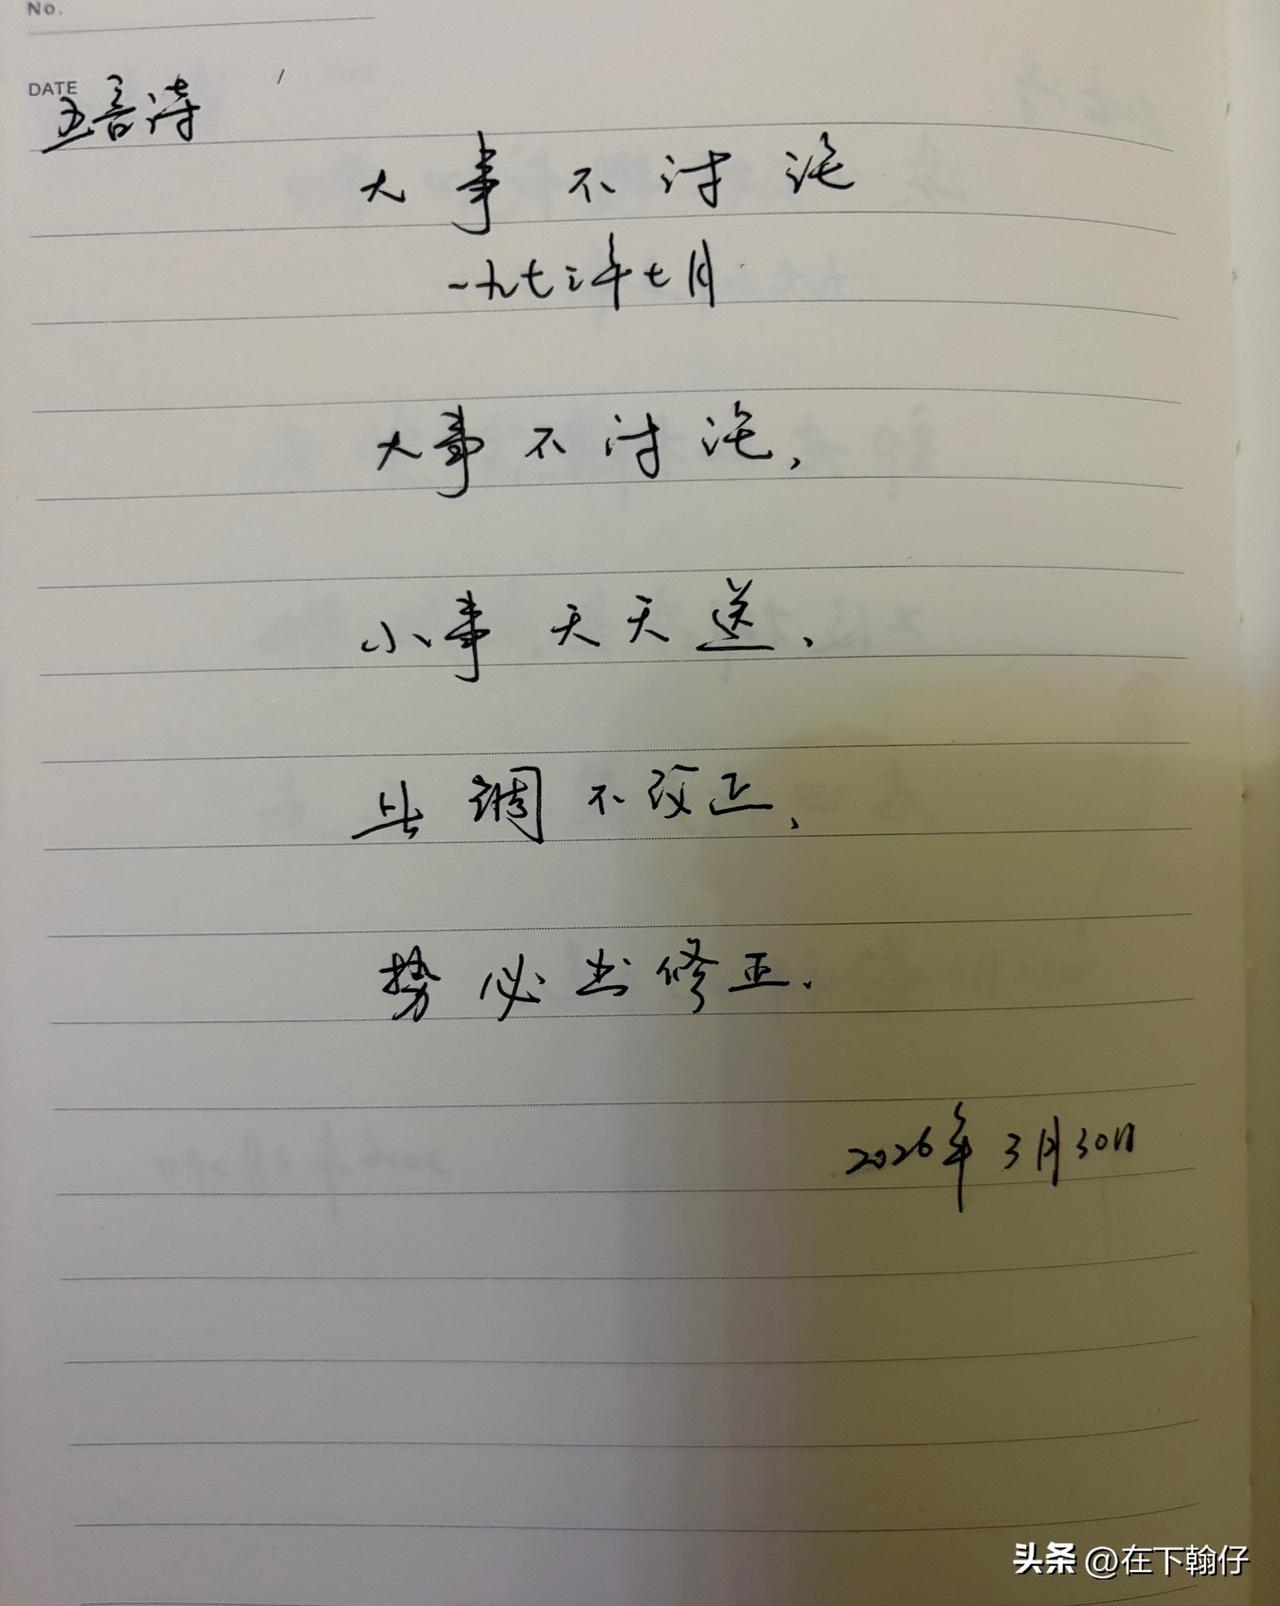 No.
DATE /
五言诗
大事不讨论
一九七三年七月
大事不讨论，
小事天天送，
此调不改正，
势必出修正.
2026年3月30日
头条 @在下翰仔